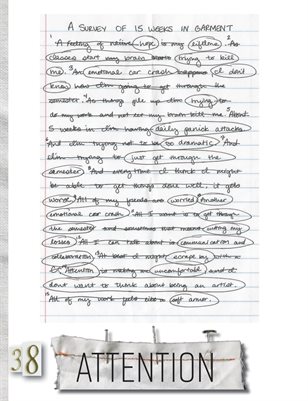 A SURVEY OF 15 WEEKS IN GARMENT
¹A feeling of relative hope is my lifeline. ²As
classes start my brain starts trying to kill
me. ³An emotional car crash happens. I don't
know how I'm going to get through the
semester. ⁴As things pile up I'm trying to
do my work and not let my brain kill me. ⁵About
5 weeks in I'm having daily panic attacks.
⁶And I'm trying not to be so dramatic. ⁷And
I'm trying to just get through the
semester. ⁸And every time I think I might
be able to get things done well it gets
worse. ⁹All of my friends are worried. ¹⁰Another
emotional car crash. ¹¹All I want is to get through
the semester and sometimes that means cutting my
losses. ¹²All I can talk about is communication and
collaboration. ¹³At best I might scrape by with a
¹⁴Attention is making me uncomfortable and I
don't want to think about being an artist.
¹⁵All of my work feels like soft armor.
38
ATTENTION